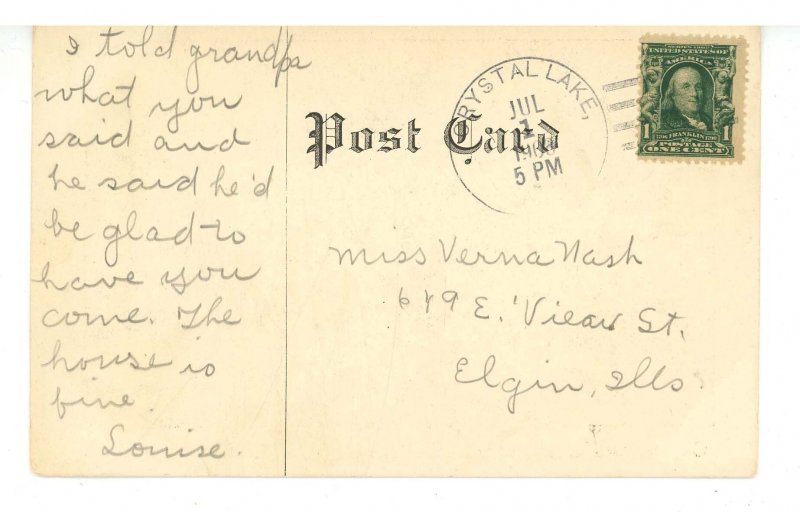 I told grandpa
what you
said and
he said he'd
be glad to
have you
come. The
house is
fine.
Louise.
Post Card
CRYSTAL LAKE,
JUL
1
5 PM
SERIES 1902
UNITED STATES OF
AMERICA
1 FRANKLIN 1
POSTAGE
ONE CENT
Miss Verna Nash
E. View St.
Elgin, Ills